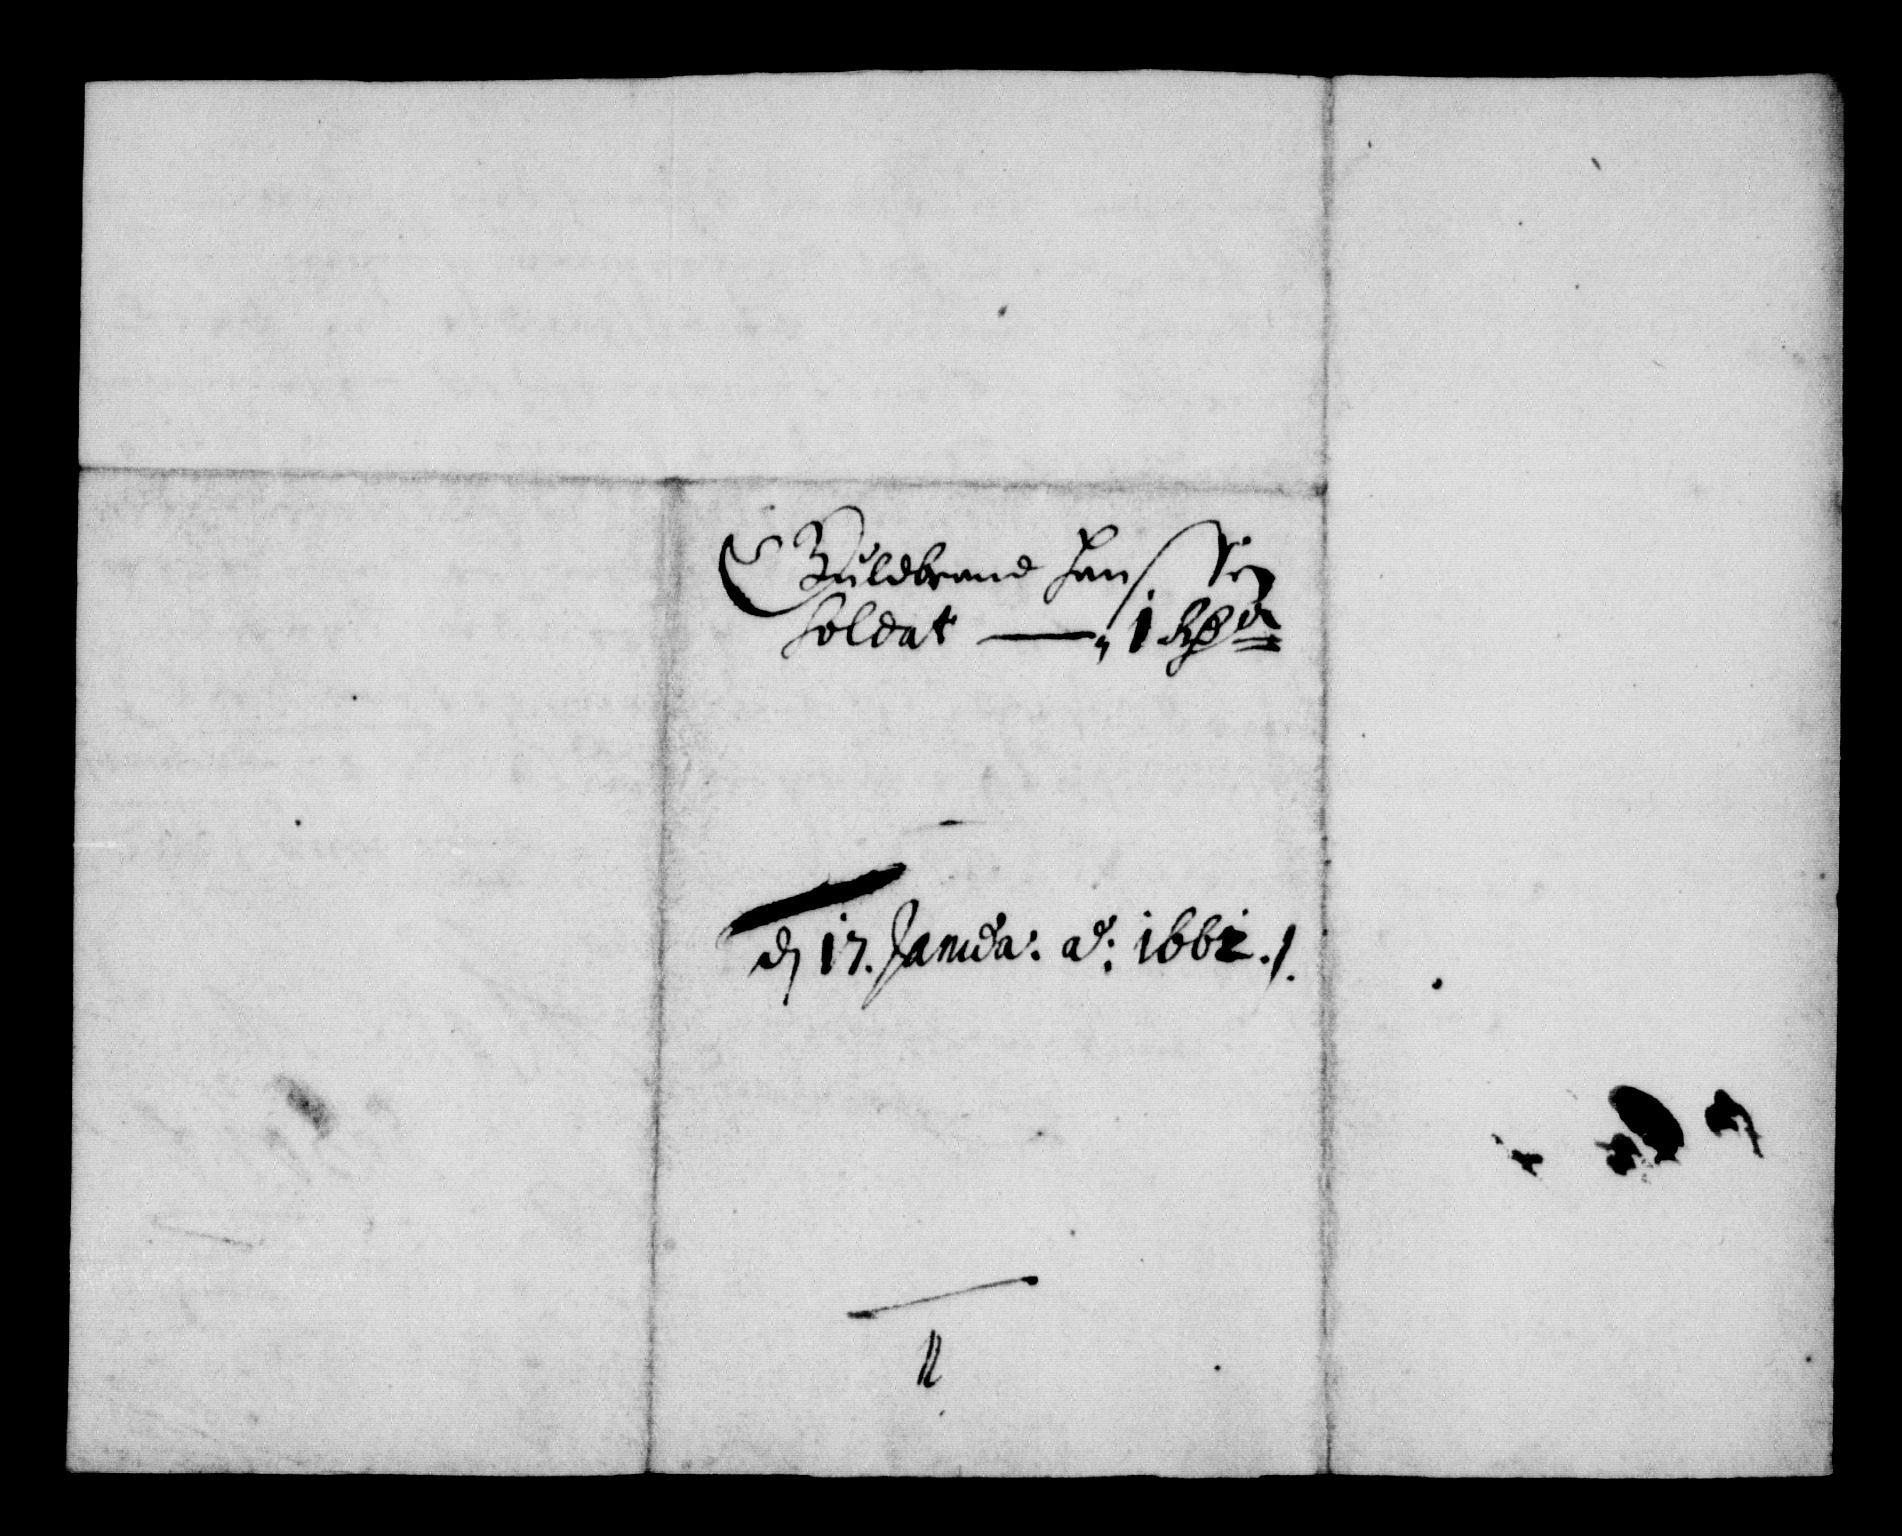 Guldbrand Hanssen
soldat —— 1 Rdr
dn 17. Janua: ao: 1662 ./.
11